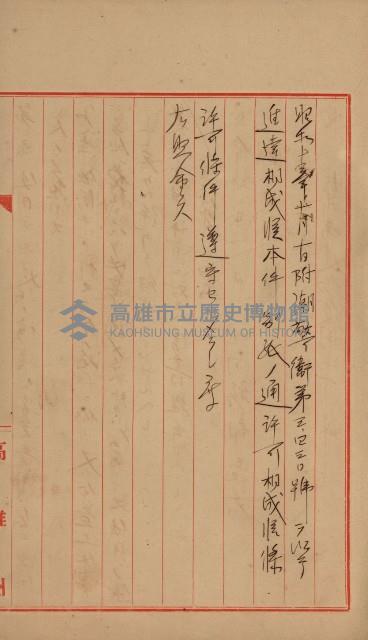 昭和十年十月 日附潮警衛第三四三〇號ヲ以テ
進達相成候本件別紙ノ通許可相成候條
許可條件遵守セシムベシ
右照會ス
高雄市立歷史博物館
KAOHSIUNG MUSEUM OF HISTORY
高雄州